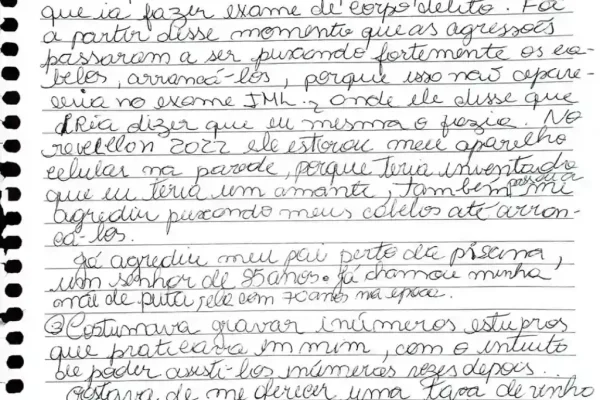 que ia fazer exame de corpo delito. Foi
a partir disse momento que as agressões
passaram a ser puxando fortemente os ca-
belos, arrancá-los, porque isso não apare-
ceria no exame IML, onde ele disse que
iRia dizer que eu mesma o fazia. No
revellon 2022 ele estorou meu aparelho
celular na parede, porque teria inventado
que eu teria um amante, também me
agrediu puxando meus cabelos até arran-
cá-los.
Já agrediu meu pai perto da piscina,
um senhor de 85 anos. Já chamou minha
mãe de puta, ela com 70 anos na época.
③ Costumava gravar inúmeros estupros
que praticava em mim, com o intuito
de poder assisti-los inúmeras vezes depois.
Gostava de me oferecer uma taça de vinho